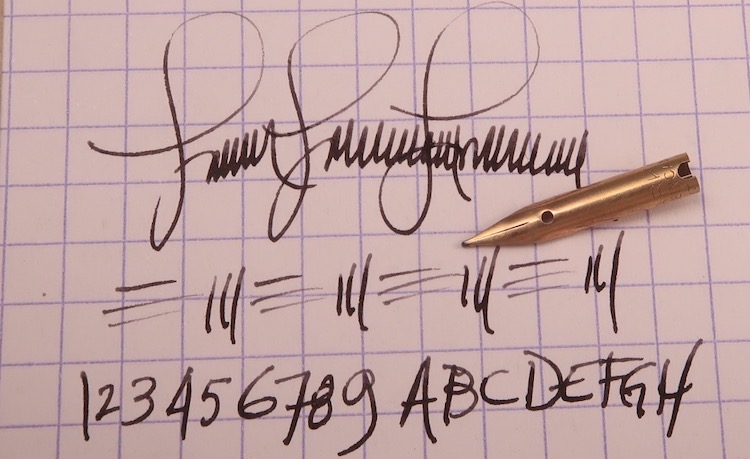 123456789 ABCDEFGH